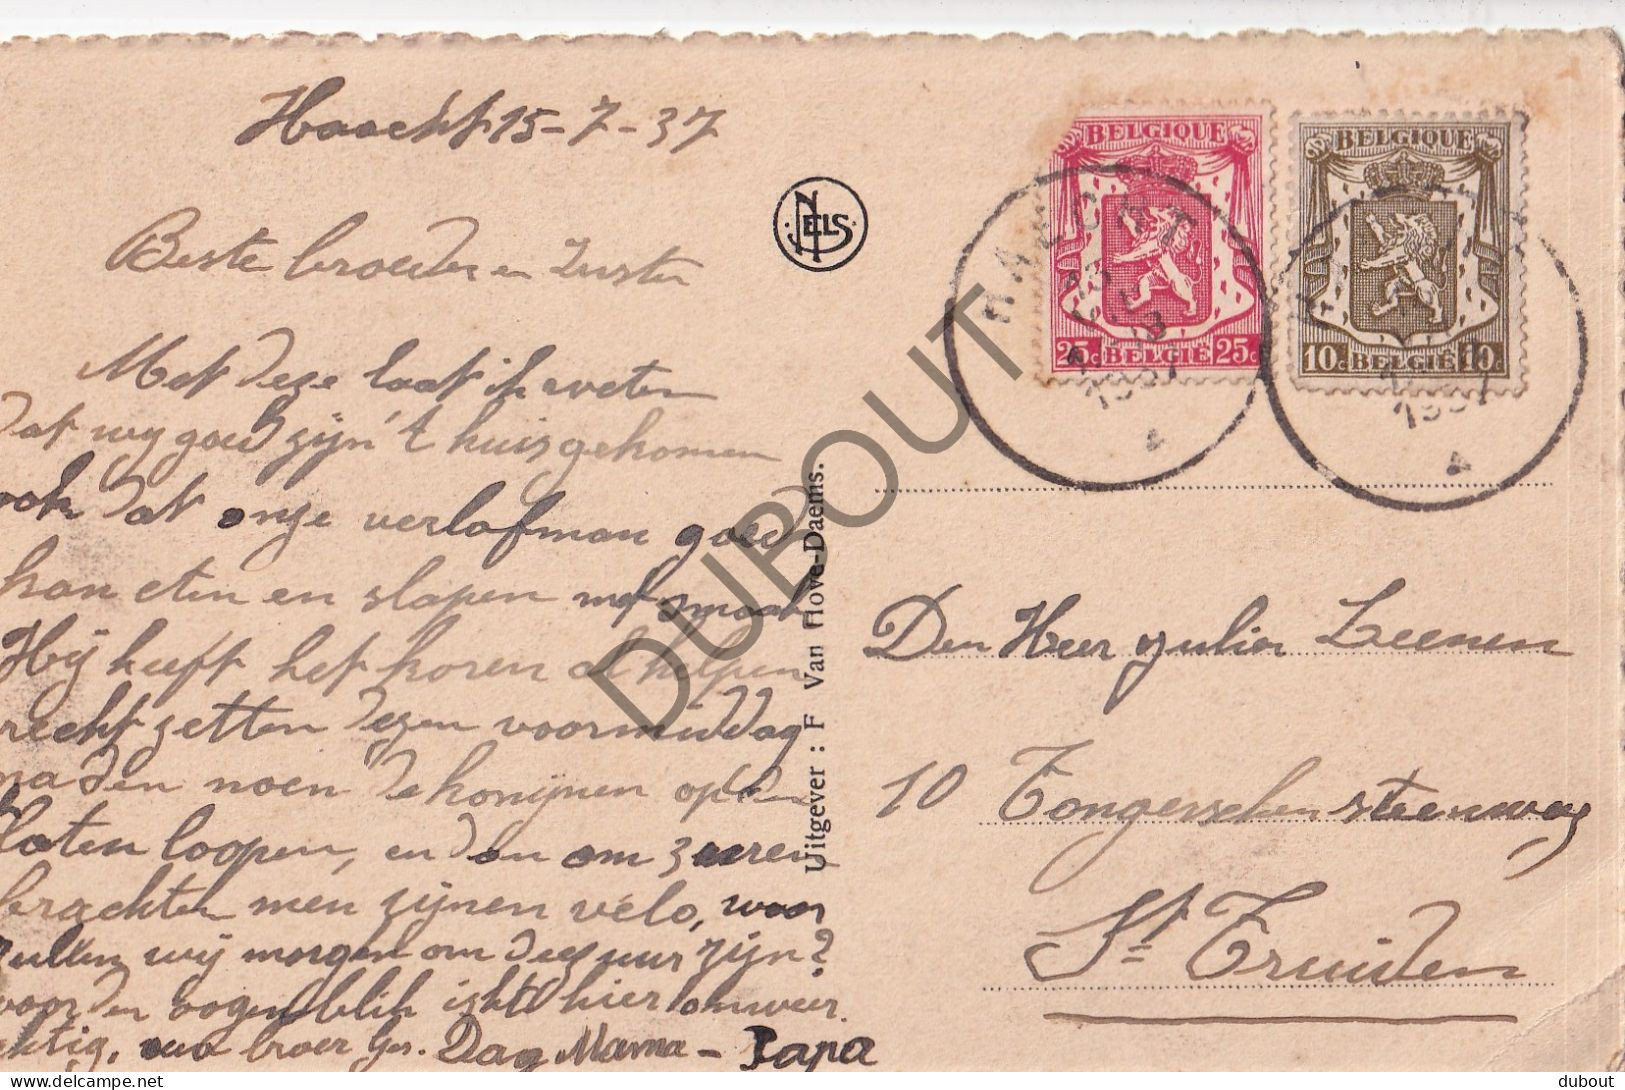 Haacht 15-7-37
NELS
Beste broeder en Zuster
Met deze laat ik weten
dat wy goed zijn 't huis gekomen
ook dat onze verlofman goed
kan eten en slapen met smaak
Hij heeft het koren al helpen
recht zetten dezen voormiddag
na den noen de konijnen op den
laten loopen, en dan om 3 uren
brachten men zijnen vélo, waar
zullen wij morgen om dees uur zijn?
voor den oogenblik is het hier onweer
achtig, uw broer Gs. Dag Mama - Papa
Uitgever : F Van Hove-Daems.
BELGIQUE
25c BELGIE 25c
BELGIQUE
10c BELGIË 10c
HAECHT
1937
1937
Den Heer Julien Leenen
10 Tongerschen steenweg
St Truiden
DUBOUT
delcampe.net
dubout